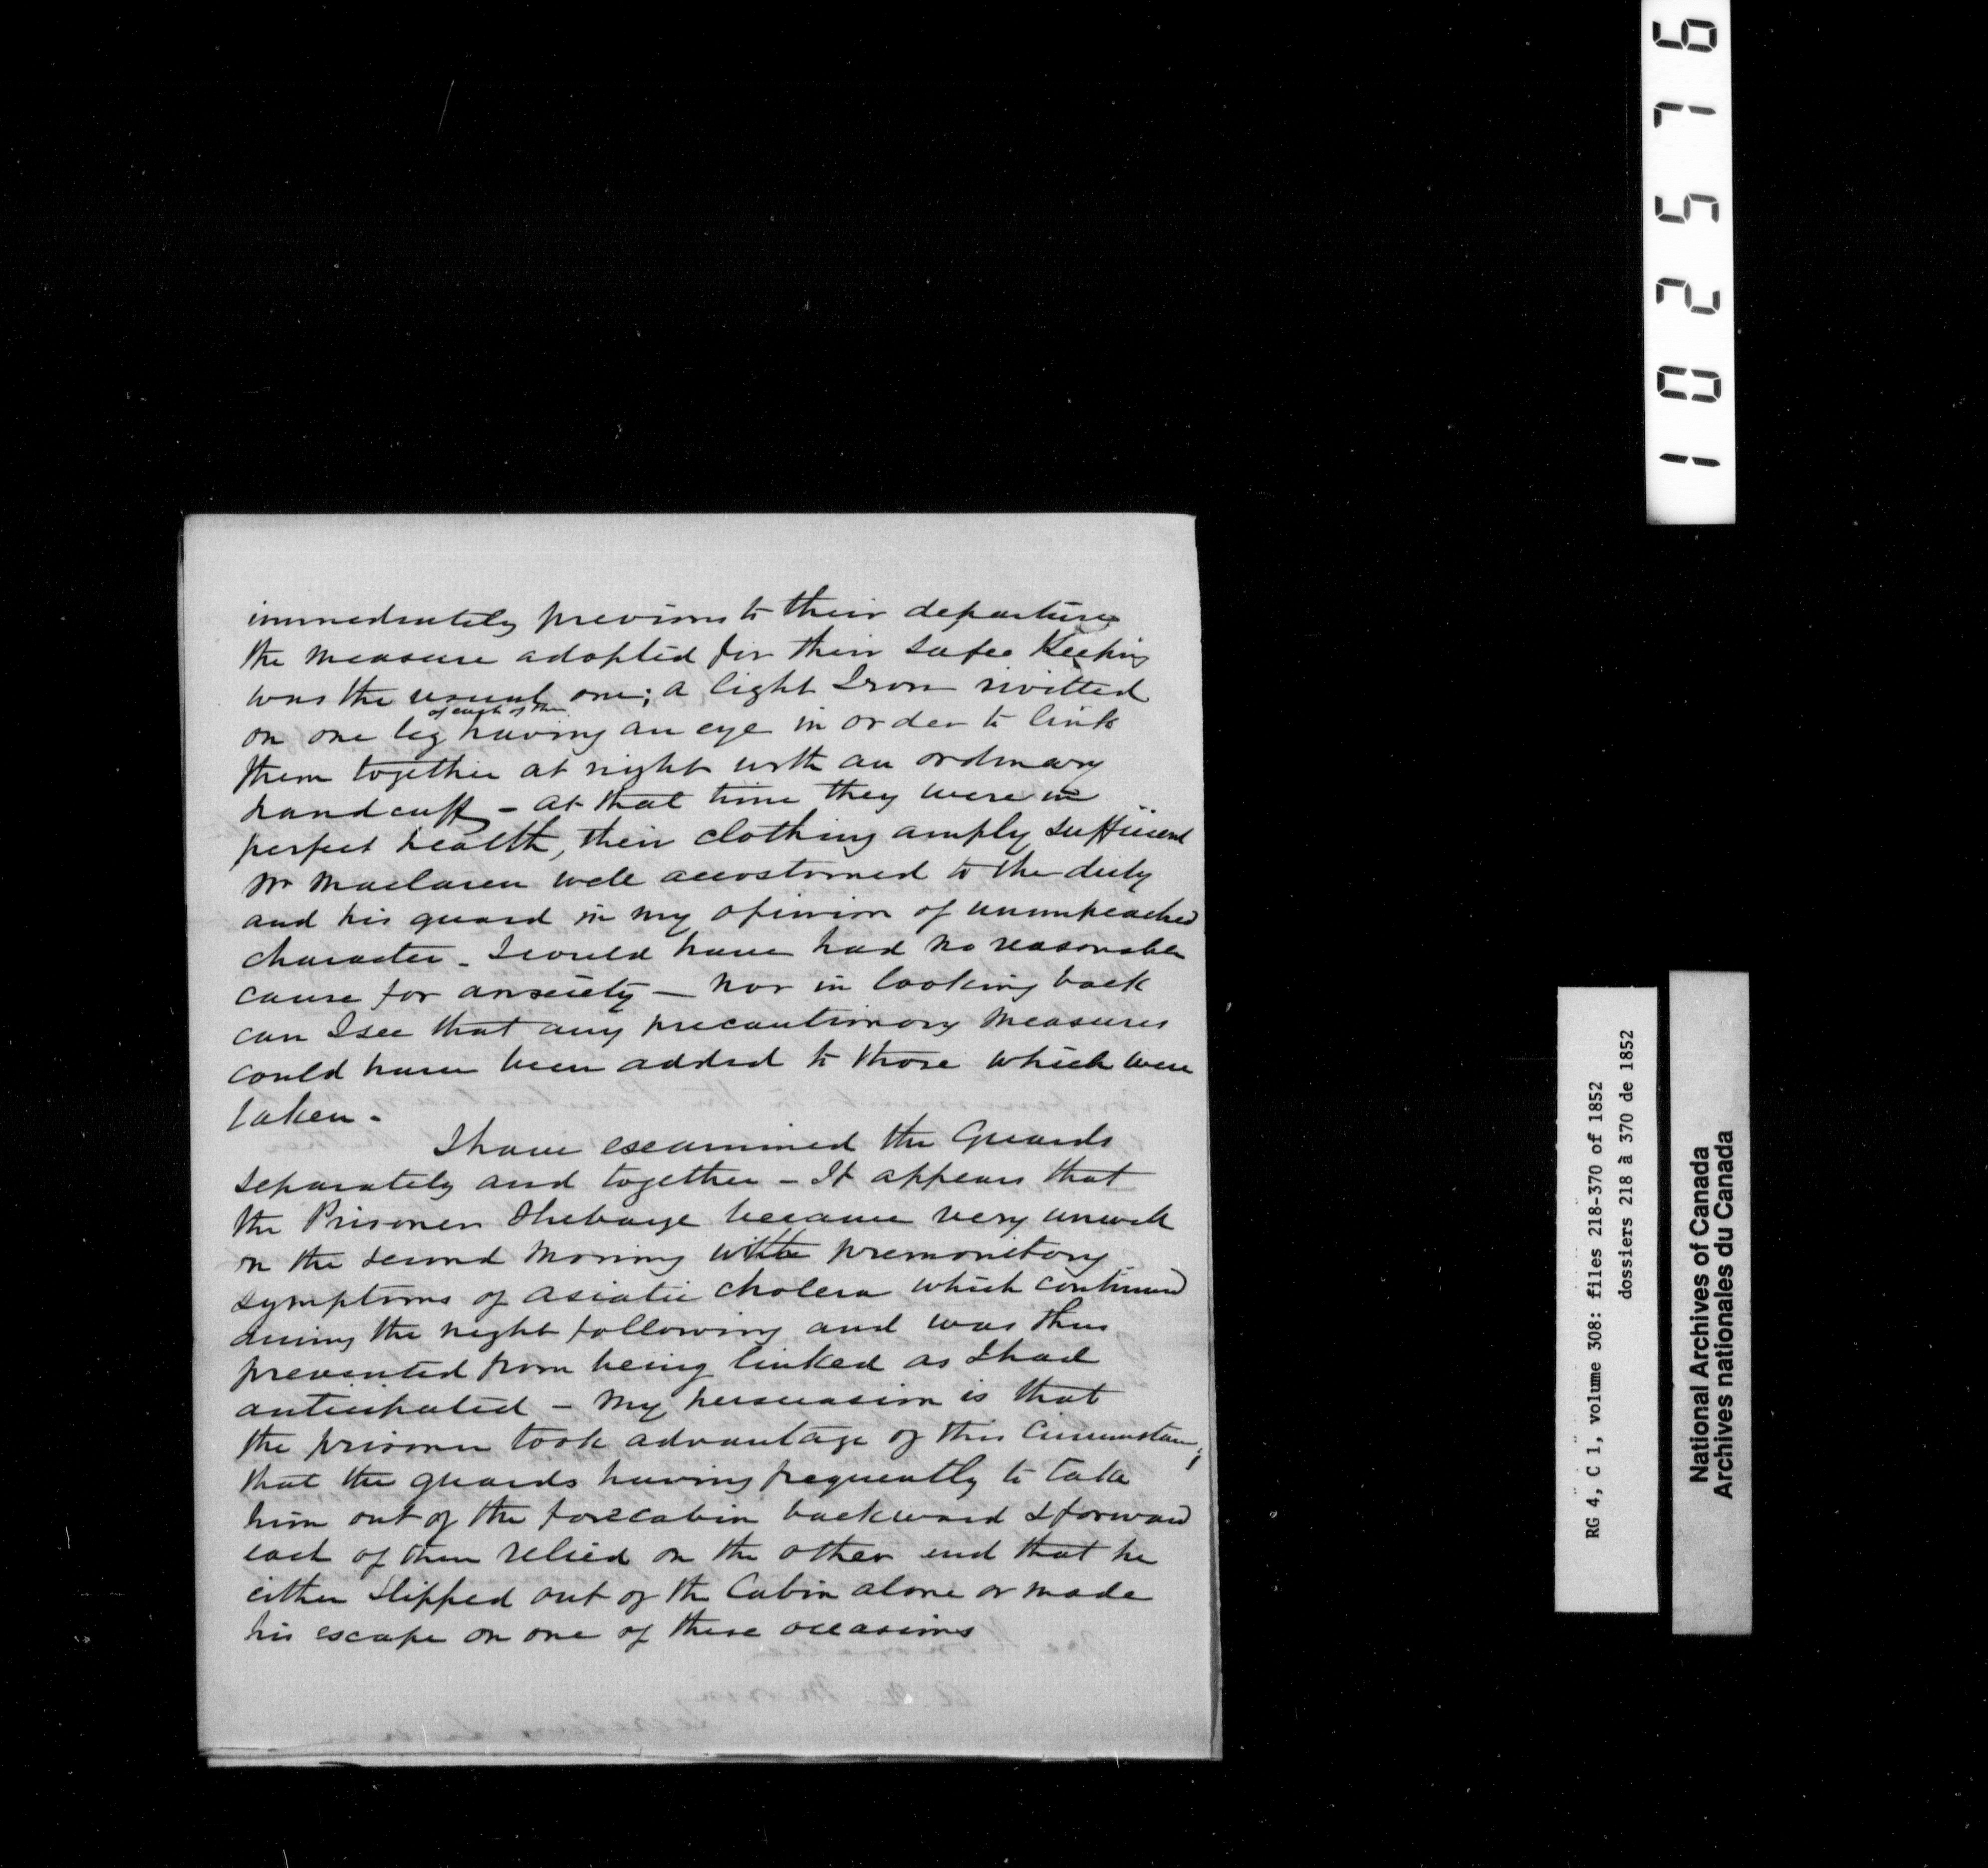 immediately previous to their departure
the measure adopted for their safe Keeping
was the usual one; a light Iron rivitted
of each of them
on one leg having an eye in order to link
them together at night with an ordinary
handcuff – at that time they were in
perfect health, their clothing amply sufficient
Mr Maclaren well accustomed to the duty
and his guard in my opinion of unimpeached
character – I could have had no reasonable
cause for anxiety – nor in looking back
can I see that any precautionary measures
could have been added to those which were
taken –
I have examined the Guards
separately and together – It appears that
the Prisoner became very unwell
on the second morning with premonitory
symptoms of asiatic cholera which continued
during the night following and was thus
prevented from being linked as I had
anticipated – My persuasion is that
the prisoner took advantage of this Circumstance;
that the guards having frequently to take
him out of the forecabin backward & forward
each of them relied on the other and that he
either slipped out of the Cabin alone or made
his escape on one of these occasions
102576
RG 4, C 1, volume 308: files 218-370 of 1852
dossiers 218 à 370 de 1852
National Archives of Canada
Archives nationales du Canada